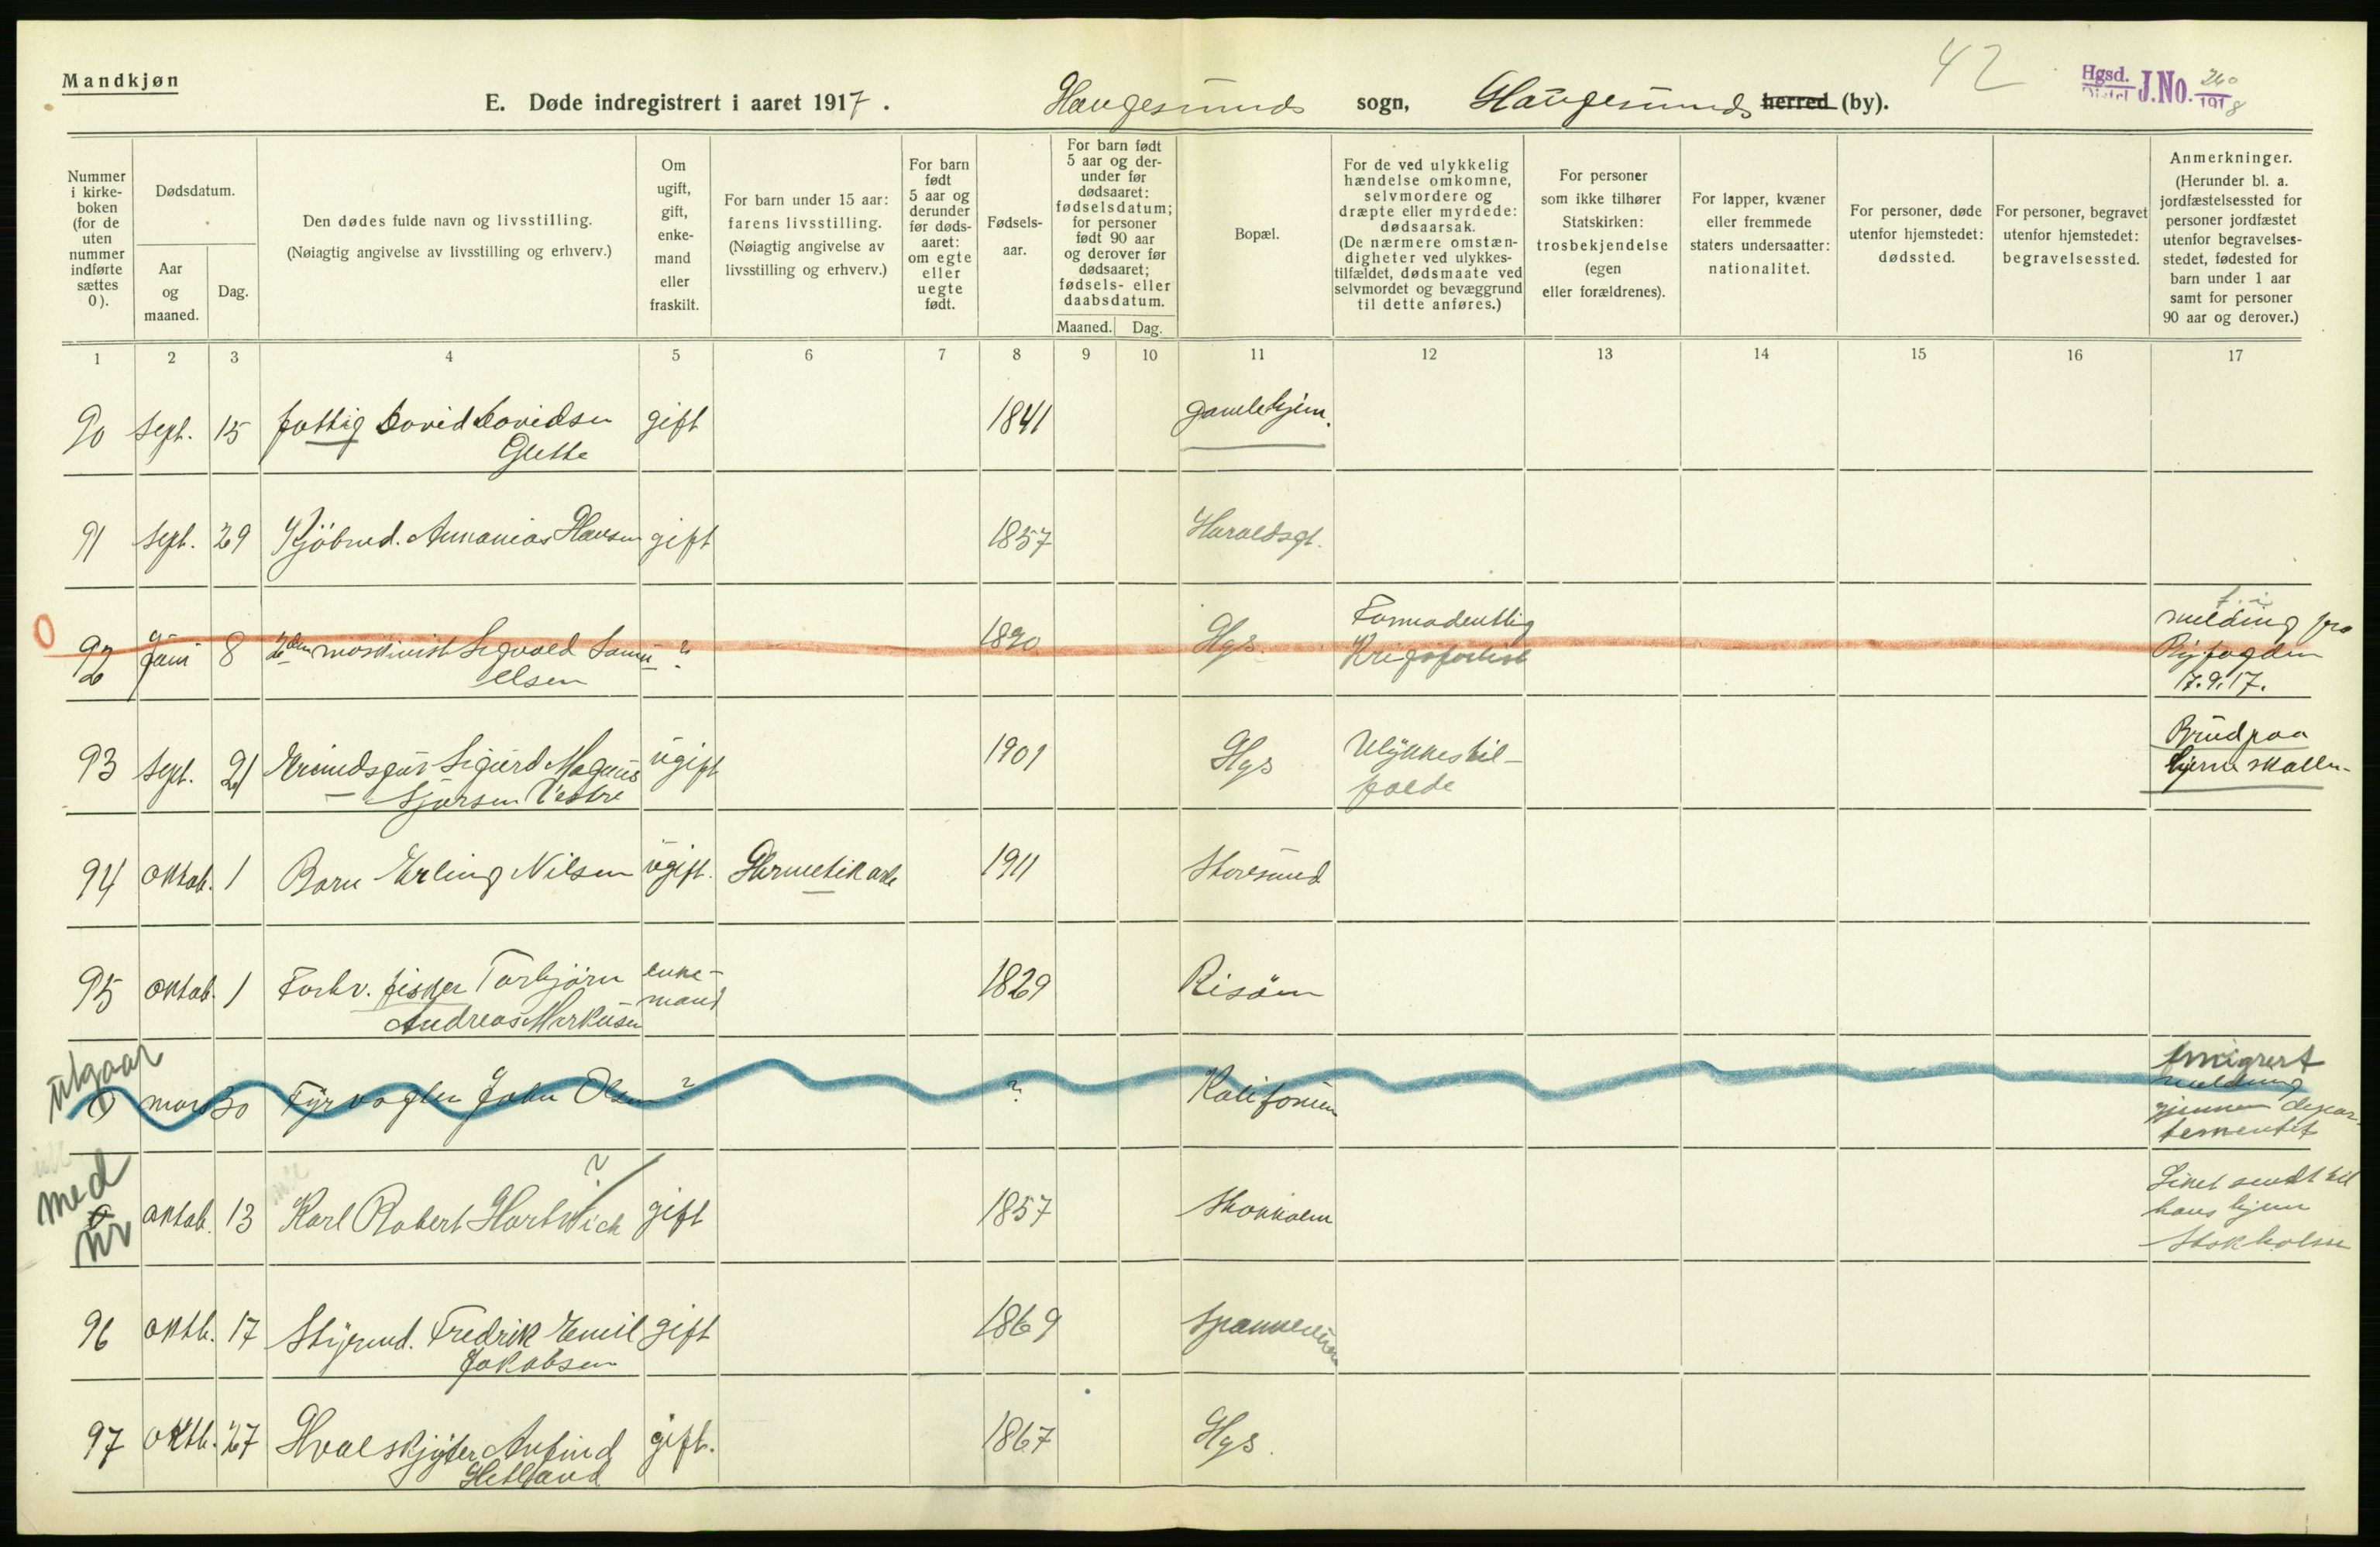 Mandkjøn
E. Døde indregistrert i aaret 1917.
Haugesunds sogn, Haugesunds herred (by).
42
Hgsd. Distri J.No. 260 1918
Nummer i kirke-boken (for de uten nummer indførte sættes 0).
Dødsdatum.
Aar og maaned.
Dag.
Den dødes fulde navn og livsstilling.
(Nøiagtig angivelse av livsstilling og erhverv.)
Om ugift, gift, enke-mand eller fraskilt.
For barn under 15 aar: farens livsstilling.
(Nøiagtig angivelse av livsstilling og erhverv.)
For barn født 5 aar og derunder før døds-aaret: om egte eller uegte født.
Fødsels-aar.
For barn født 5 aar og der-under før dødsaaret: fødselsdatum; for personer født 90 aar og derover før dødsaaret; fødsels- eller daabsdatum.
Maaned.
Dag.
Bopæl.
For de ved ulykkelig hændelse omkomne, selvmordere og dræpte eller myrdede: dødsaarsak.
(De nærmere omstæn-digheter ved ulykkes-tilfældet, dødsmaate ved selvmordet og bevæggrund til dette anføres.)
For personer som ikke tilhører Statskirken: trosbekjendelse (egen eller forældrenes).
For lapper, kvæner eller fremmede staters undersaatter: nationalitet.
For personer, døde utenfor hjemstedet: dødssted.
For personer, begravet utenfor hjemstedet: begravelsessted.
Anmerkninger.
(Herunder bl. a. jordfæstelsessted for personer jordfæstet utenfor begravelses-stedet, fødested for barn under 1 aar samt for personer 90 aar og derover.)
1 2 3 4 5 6 7 8 9 10 11 12 13 14 15 16 17
90 Sept. 15 fattig David Davidsen gift 1841 gamlehjem.
Glette
91 Sept. 29 Kjöbmd. Annanias Hansen gift 1857 Haraldsgt.
0
92 Juni 8 2den maskinist Sigvald ? 1890 Hgs. Formodentlig Krigsforlist melding fra
Olsen
17.9.17.
93 Sept. 21 Ærindsgut Sigurd Magnus ugift 1901 Hgs Ulykkestil-
falde
Vestre
Brud paa
hjerneskallen
94 Oktob. 1 Barn Erling Nilsen ugift. Hermetikarb 1911 Storesund
95 Oktob. 1 Forhv. fisker Torbjörn enke-
mand 1829 Risöen
Andreas Markusen
utgaar
0 mars 30 Fyrvogter John Olsen ? ? Kalifornien Emigrert
melding
gjennem depar-
tementet
med
nr
0 Oktob. 13 Karl Robert Hartwich ? gift 1857 Stokholm Liket sendt til
hans hjem
Stokholm
96 Oktb. 17 Styrmd. Fredrik Emil gift 1869
Jakobsen
97 Oktb. 27 Hvalskjyter Anfind gift. 1867 Hgs.
Hetland